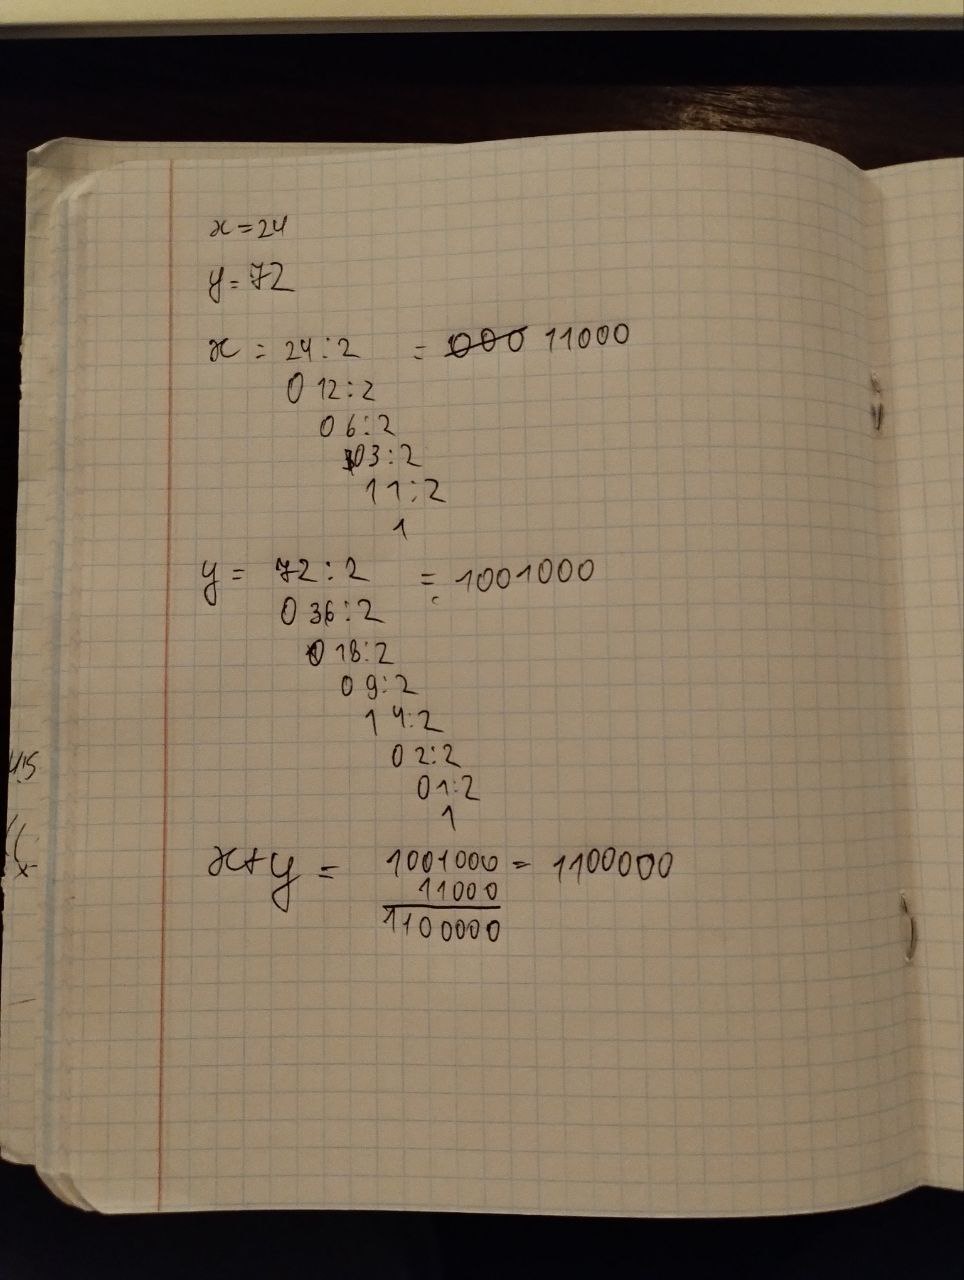 x = 24
y = 72
x = 24 : 2 = 000 11000
0 12 : 2
0 6 : 2
0 3 : 2
1 1 : 2
1
y = 72 : 2 = 1001000
0 36 : 2
0 18 : 2
0 9 : 2
1 4 : 2
0 2 : 2
0 1 : 2
1
x+y = 1001000 = 1100000
11000
1100000